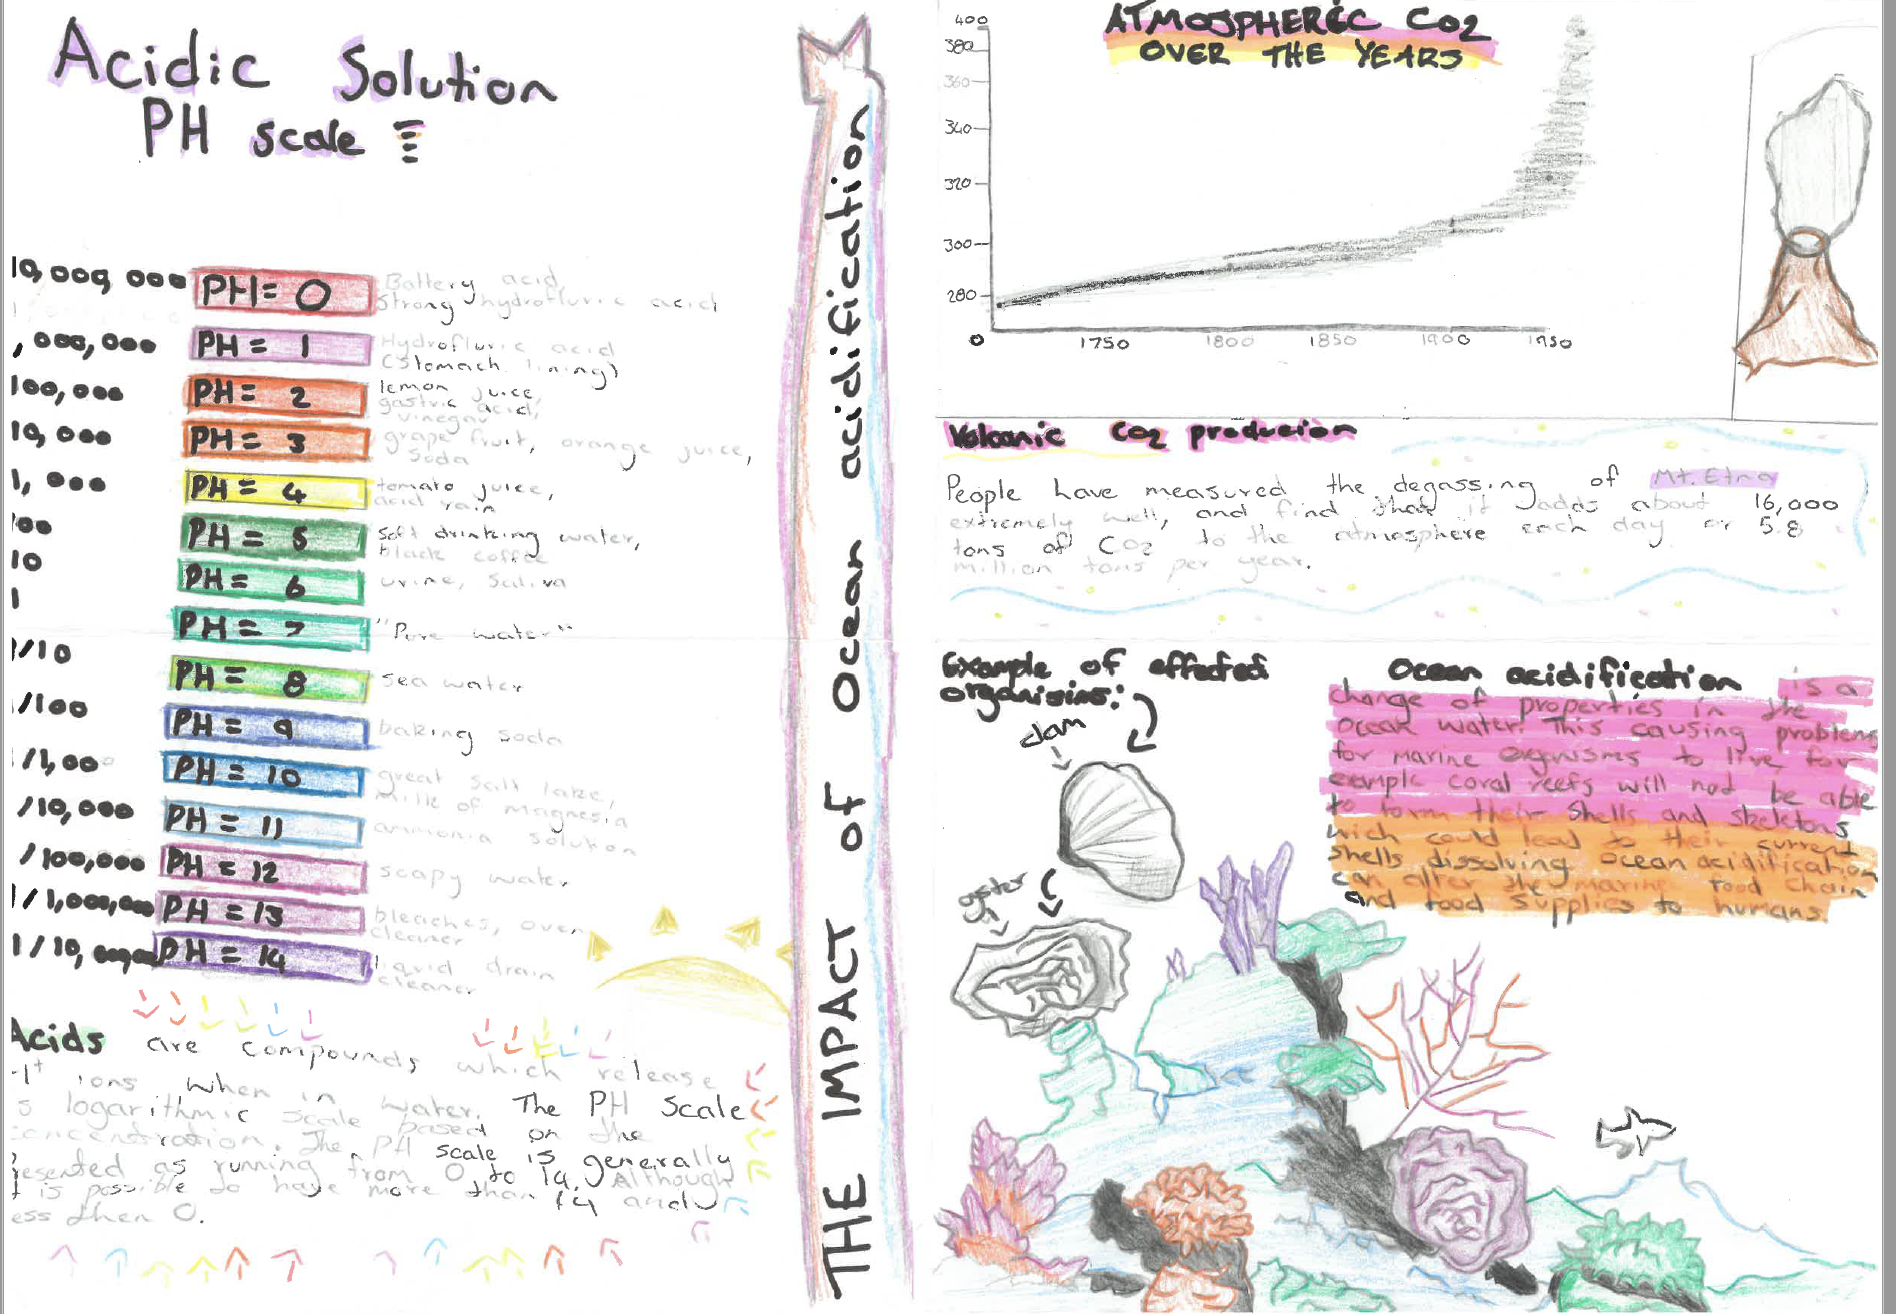 Acidic Solution
PH scale
10,000,000 PH= 0 Battery acid,
Strong hydrofluric acid
,000,000 PH= 1 Hydrofluric acid
(Stomach lining)
100,000 PH= 2 lemon juice,
gastric acid,
vinegar
10,000 PH= 3 grape fruit, orange juice,
Soda
1,000 PH= 4 tomato juice,
acid rain
100 PH= 5 soft drinking water,
black coffee
10 PH= 6 urine, Saliva
1 PH= 7 "Pure water"
1/10 PH= 8 sea water
/100 PH= 9 baking soda
/1,000 PH= 10 great salt lake,
milk of magnesia
/10,000 PH= 11 ammonia solution
/100,000 PH=12 soapy water
1/1,000,000 PH=13 bleaches, oven
cleaner
1/10, PH= 14 liquid drain
cleaner
Acids are compounds which release
H+ ions when in water. The PH Scale
s logarithmic scale based on the
concentration. The pH scale is generally
resented as running from 0 to 14. Although
t is possible to have more than 14 and
ess then 0.
THE IMPACT OF Ocean acidification
ATMOSPHERIC CO2
OVER THE YEARS
400
380
360
340
320
300
280
0 1750 1800 1850 1900 1950
Volcanic CO2 producion
People have measured the degassing of Mt. Etna
extremely well, and find that it adds about 16,000
tons of CO2 to the atmosphere each day or 5.8
million tons per year.
Example of effected
organisims:
clam
oyster
Ocean acidification is a
change of properties in the
ocean water. This causing problems
for marine organisms to live for
example coral reefs will not be able
to form their shells and skeletons
wich could lead to their current
shells dissolving ocean acidification
can alter the marine food chain
and food supplies to humans.